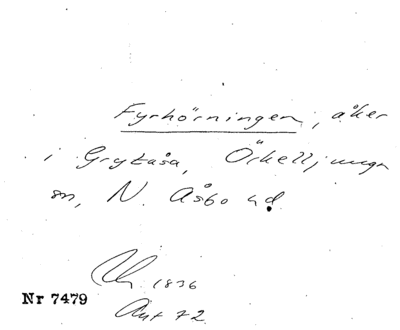 Fyrhörningen, åker
i Grytåsa, Örkelljunga
sn, N. Åsbo hd.
1836
Nr 7479
Akt 72